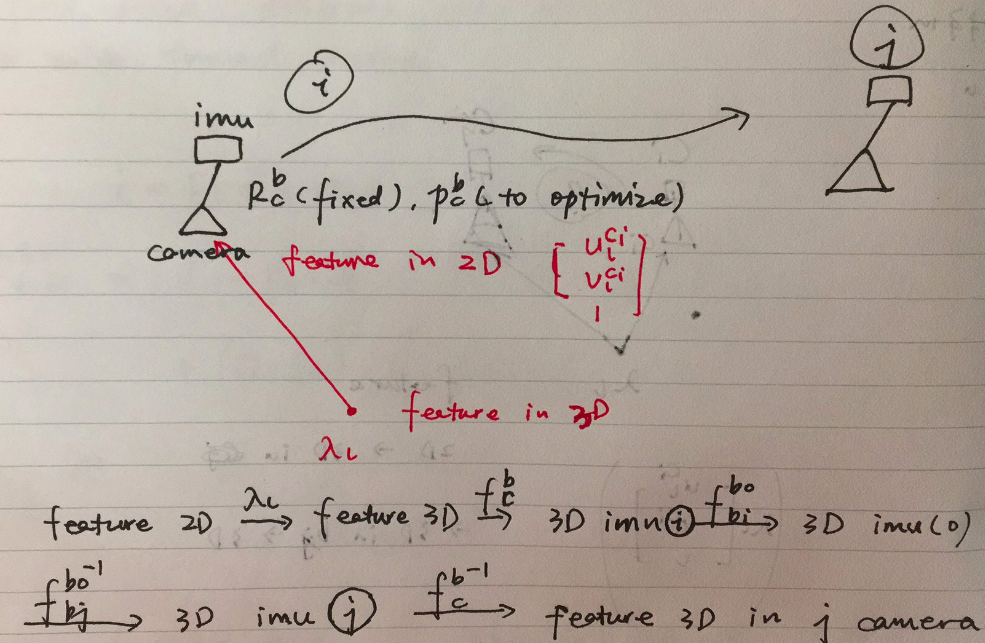 i
j
imu
R_c^b (fixed), p_c^b (to optimize)
camera
feature in 2D [u_l^{ci} v_l^{ci} 1]
feature in 3D
λ_l
feature 2D →^{λ_l} feature 3D →^{f_c^b} 3D imu i →^{f_{bi}^{b0}} 3D imu(0)
→^{f_{bj}^{b0^{-1}}} 3D imu j →^{f_c^{b^{-1}}} feature 3D in j camera